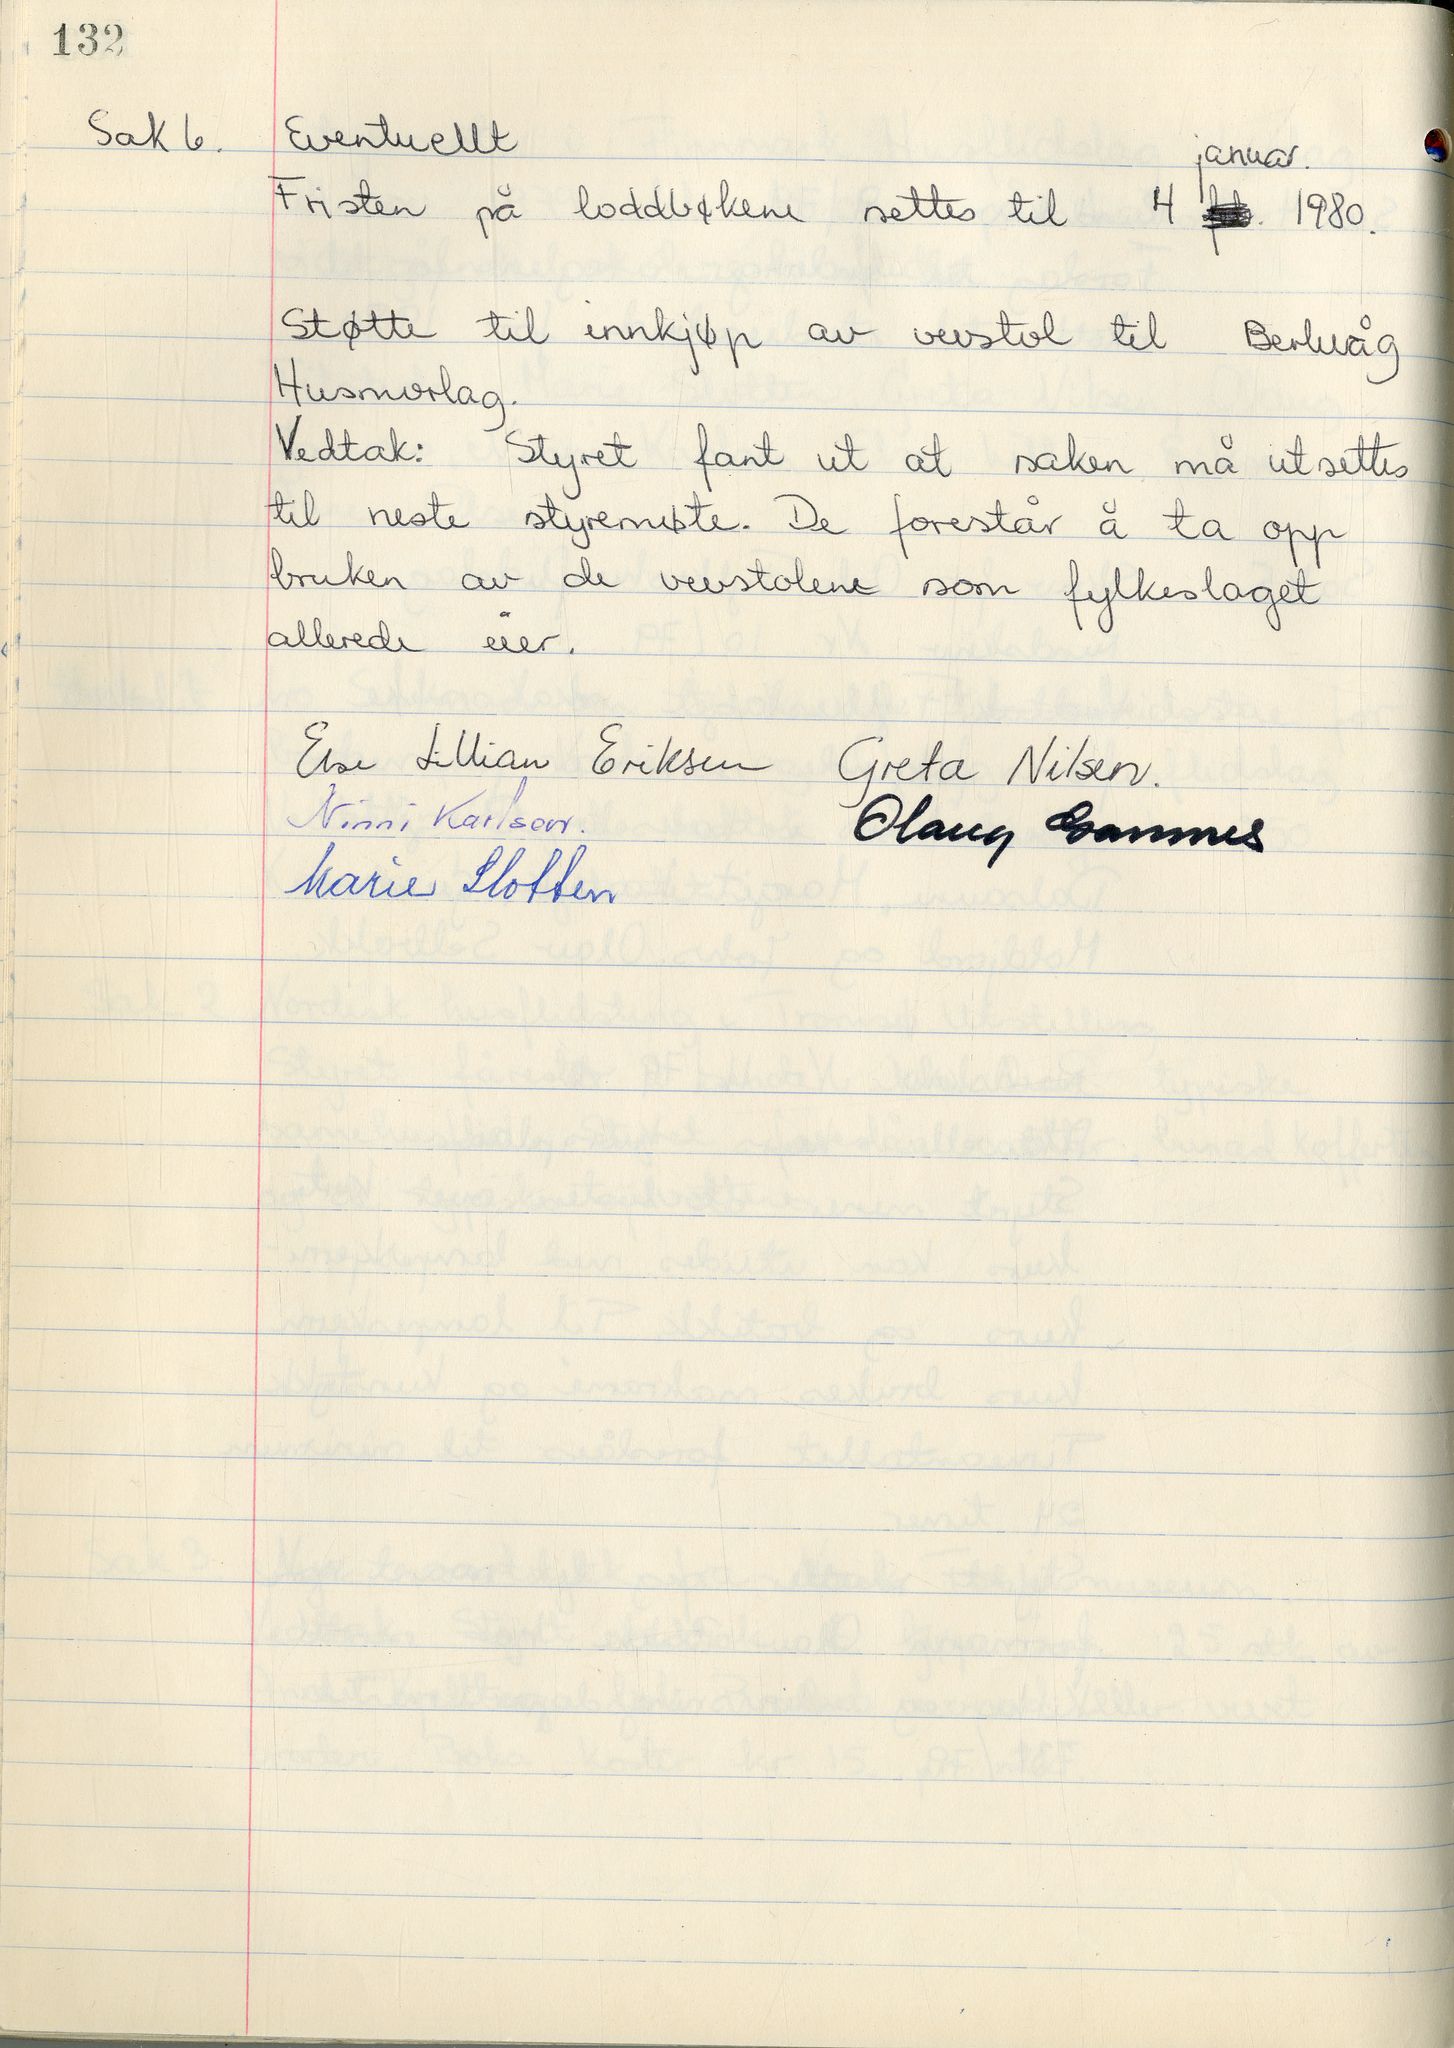 132
Sak 6. Eventuellt
januar.
Fristen på loddbøkene settes til 4 1980.
Støtte til innkjøp av vevstol til Berlevåg
Husmorlag.
Vedtak: Styret fant ut at saken må utsettes
til neste styremøte. De forestår å ta opp
bruken av de vevstolene som fylkeslaget
allerede eier.
Else Lillian Eriksen Greta Nilsen.
Ninni Karlsen. Olaug
Marie Slotten